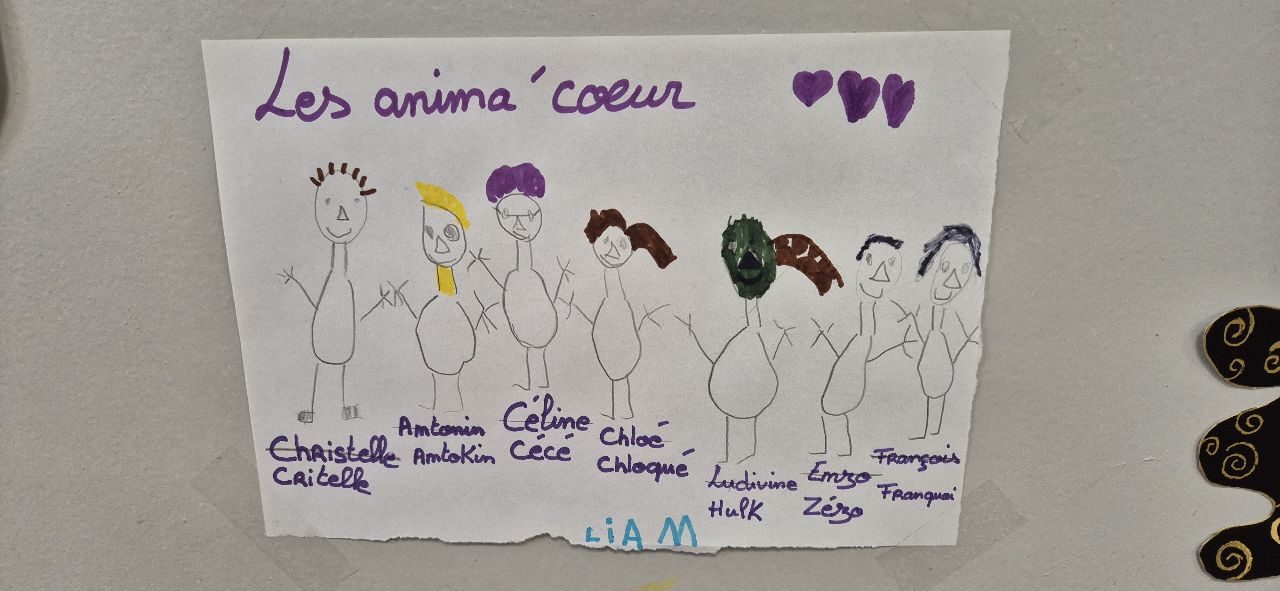 Les anima'coeur
Christelle
Critelle
Antonin
Antokin
Céline
Cécé
Chloé
Chloqué
Ludivine
Hulk
Enzo
Zézo
François
Franquoi
LiAM